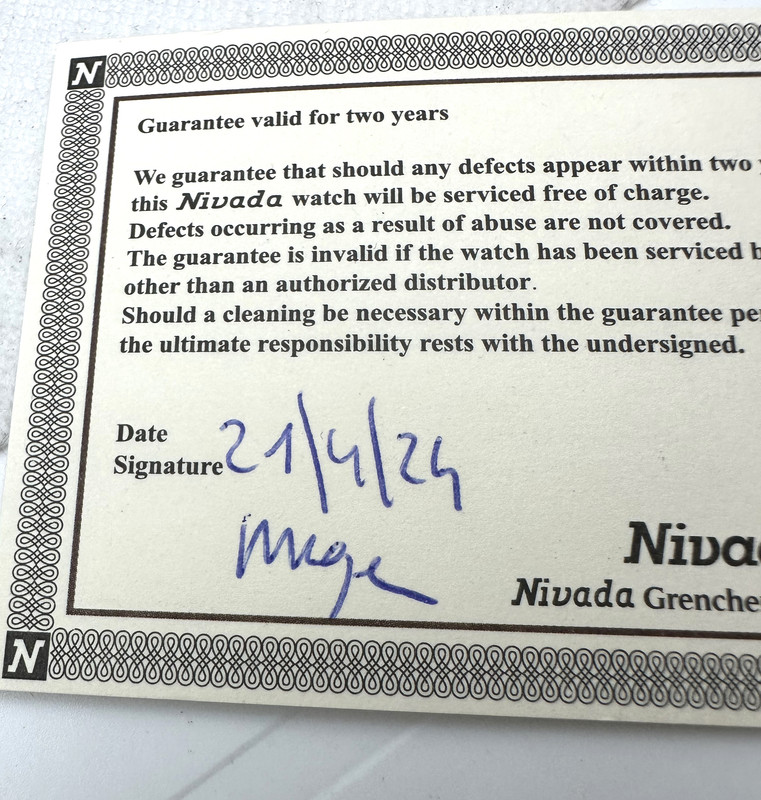 N
Guarantee valid for two years
We guarantee that should any defects appear within two
this Nivada watch will be serviced free of charge.
Defects occurring as a result of abuse are not covered.
The guarantee is invalid if the watch has been serviced b
other than an authorized distributor.
Should a cleaning be necessary within the guarantee pe
the ultimate responsibility rests with the undersigned.
Date 21/4/24
Signature
Nivada
Nivada Grenche
N